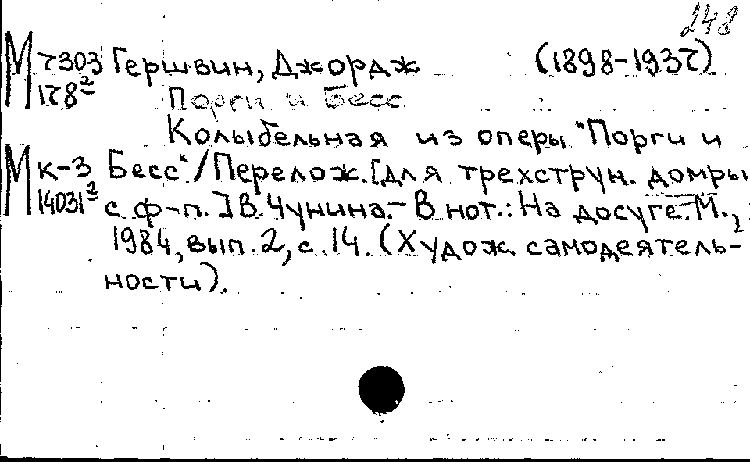 248
М 7303 Гершвин, Джордж (1898-1937)
178² Порги и Бесс
Колыбельная из оперы "Порги и
М к-3 Бесс" / Перелож. [для трехструн. домры
14031² с ф-п.] В. Чунина. - В нот.: На досуге. М.,
1984, вып. 2, с. 14. (Худож. самодеятель-
ности).